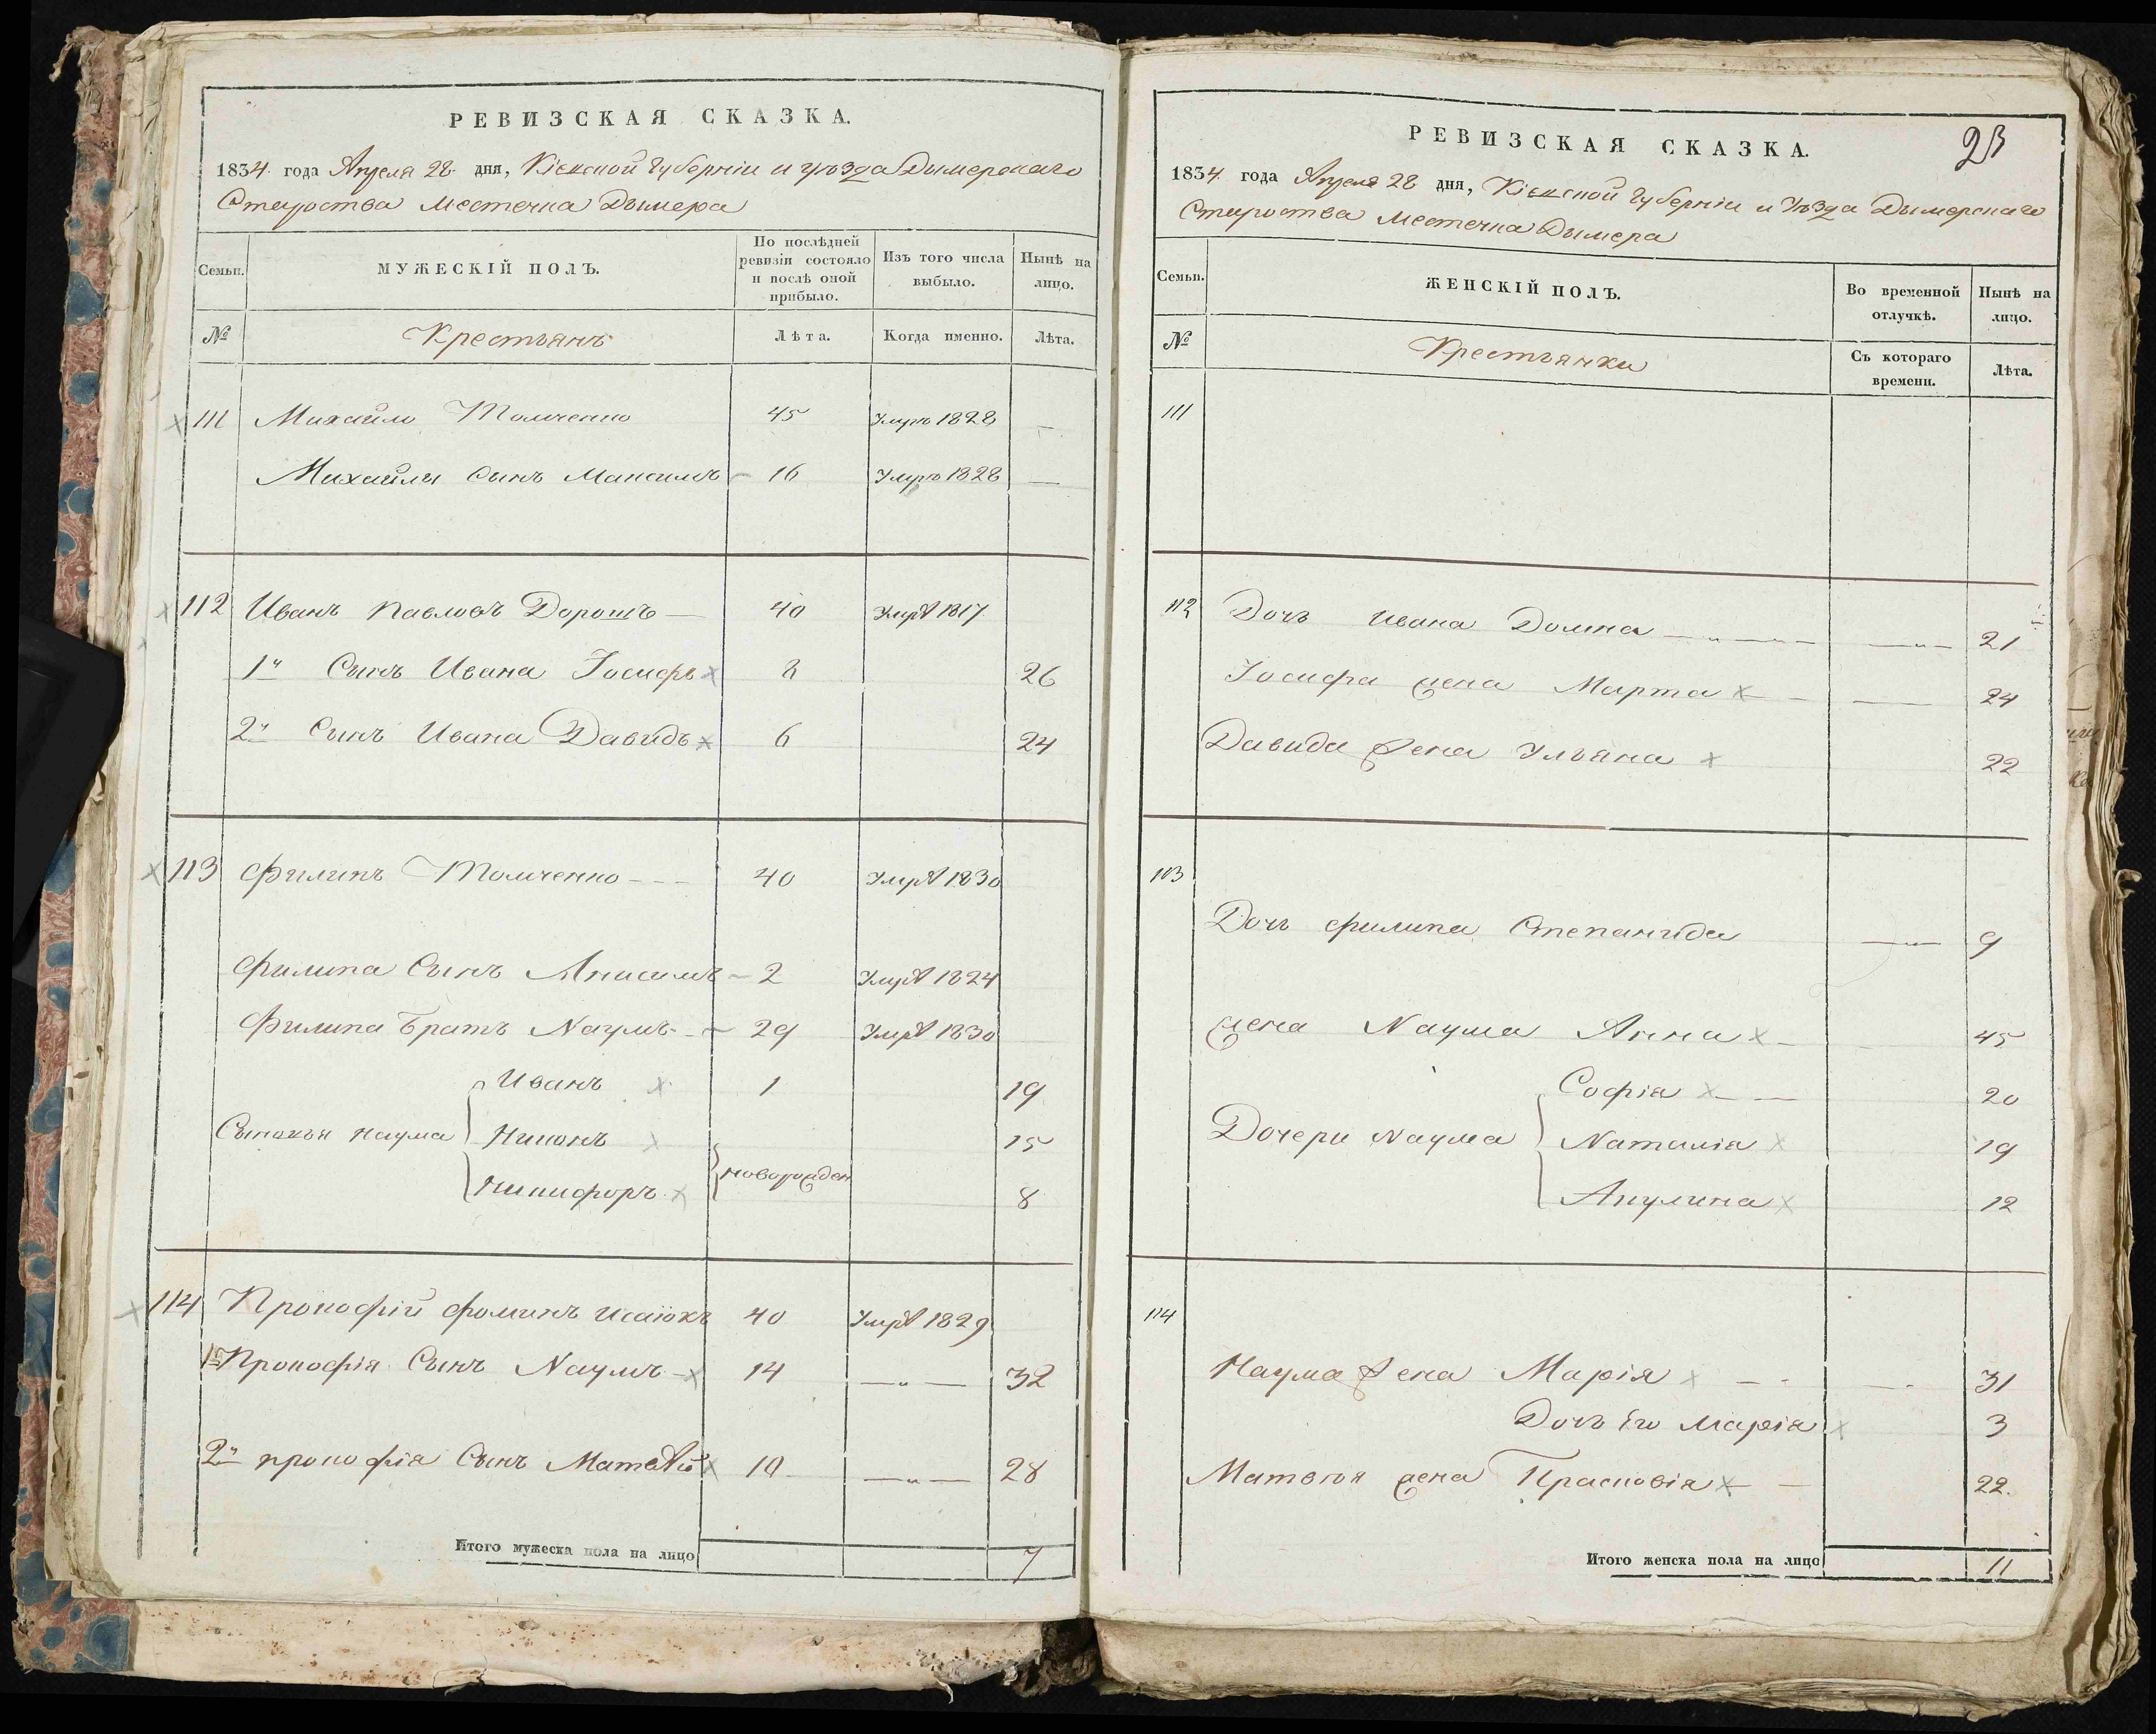 РЕВИЗСКАЯ СКАЗКА.
1834 года Апреля 28 дня, Кіевской Губерніи и уѣзда Дымерскаго
Староства Местечка Дымера
Семьи.
МУЖЕСКІЙ ПОЛЪ.
По послѣдней ревизіи состояло и послѣ оной прибыло.
Изъ того числа выбыло.
Нынѣ на лицо.
№
Крестьянъ
Лѣта.
Когда именно.
Лѣта.
111 Михайло Толченко 45 Умръ 1828 —
Михайлы Сынъ Максимъ 16 Умръ 1828 —
112 Иванъ Павловъ Дорошъ — 40 Умрѣ 1817
1й Сынъ Ивана Іосифъ 8 26
2й Сынъ Ивана Давидъ 6 24
113 Филипъ Толченко 40 Умрѣ 1830
Филипа Сынъ Анисимъ 2 Умрѣ 1824
Филипа Братъ Наумъ 29 Умрѣ 1830
Иванъ 1 19
Сыновья Наума Никонъ 15
новорожден
Никифоръ 8
114 Прокофій Фоминъ Исаюкъ 40 Умрѣ 1829
1й Прокофія Сынъ Наумъ 14 — „ — 32
2й прокофія Сынъ Матвѣй 10 — „ — 28
Итого мужеска пола на лицо 7
23
РЕВИЗСКАЯ СКАЗКА.
1834 года Апреля 28 дня, Кіевской Губерніи и Уѣзда Дымерскаго
Староства Местечка Дымера
Семьи.
ЖЕНСКІЙ ПОЛЪ.
Во временной отлучкѣ.
Нынѣ на лицо.
№
Крестьянки
Съ котораго времени.
Лѣта.
111
112 Дочь Ивана Домна — „ — 21
Іосифа жена Марта — 24
Давида жена Ульяна 22
113
Дочь филипа Степанида — „ — 9
жена Наума Анна 45
Софія 20
Дочери Наума Наталія 19
Акулина 12
114
Наума жена Марія — 31
Дочь Его Марія 3
Матвѣя жена Прасковія 22.
Итого женска пола на лицо 11